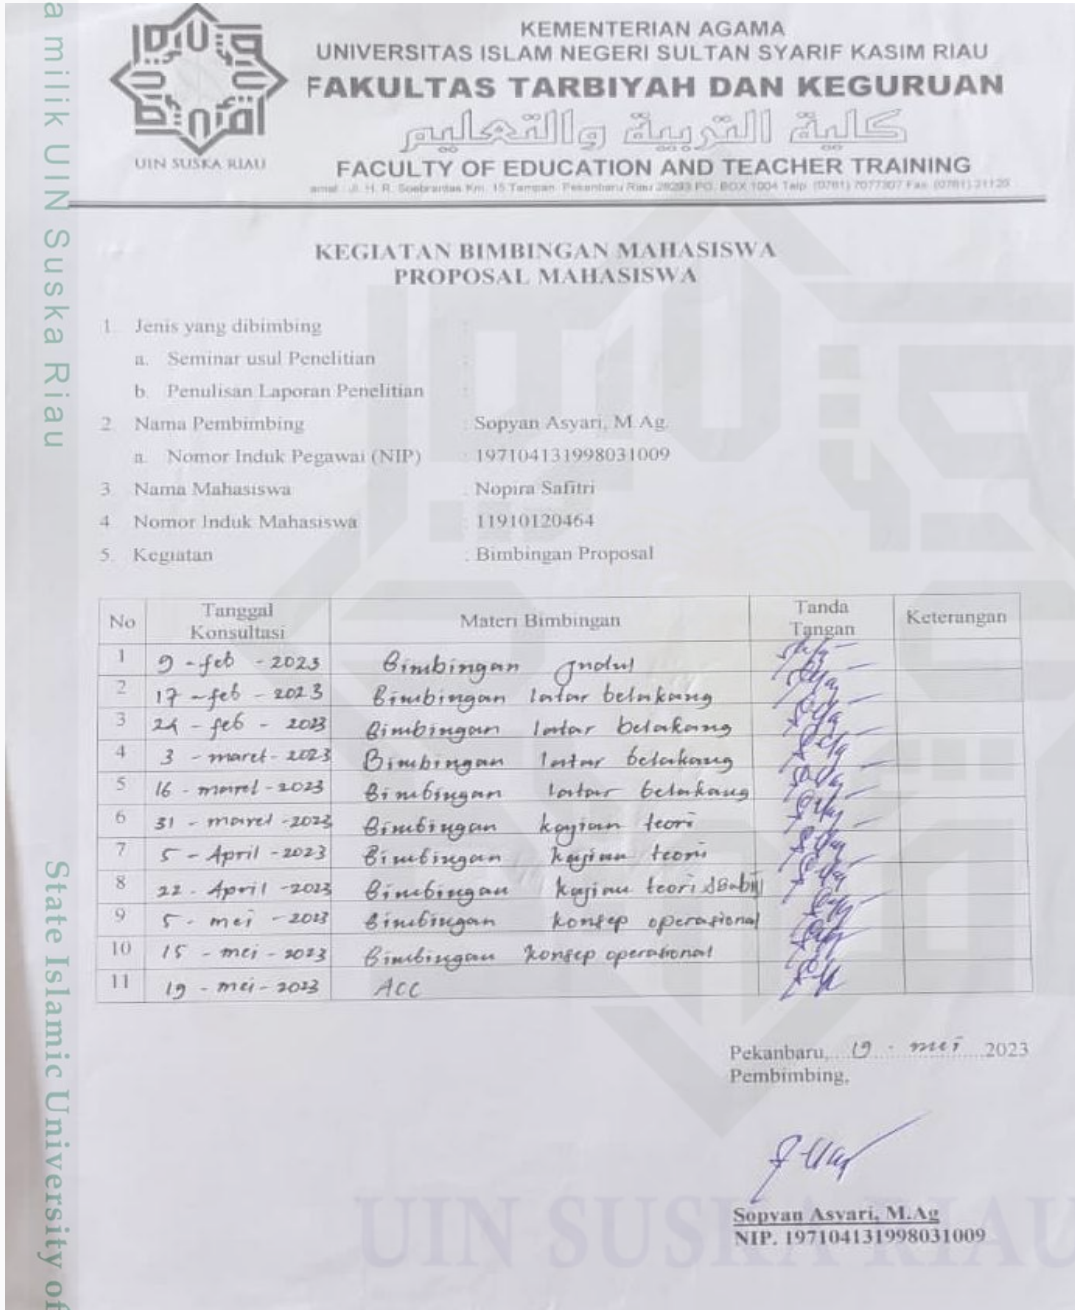 a milik UIN Suska Riau
State Islamic University of
UIN SUSKA RIAU
KEMENTERIAN AGAMA
UNIVERSITAS ISLAM NEGERI SULTAN SYARIF KASIM RIAU
FAKULTAS TARBIYAH DAN KEGURUAN
كلية التربية والتعليم
FACULTY OF EDUCATION AND TEACHER TRAINING
Jl. H. R. Soebrantas Km. 15 Tampan Pekanbaru Riau 28293 PO. BOX 1004 Telp. (0761) 7077307 Fax. (0761) 21129
KEGIATAN BIMBINGAN MAHASISWA
PROPOSAL MAHASISWA
1. Jenis yang dibimbing :
a. Seminar usul Penelitian :
b. Penulisan Laporan Penelitian :
2. Nama Pembimbing : Sopyan Asyari, M.Ag.
a. Nomor Induk Pegawai (NIP) : 197104131998031009
3. Nama Mahasiswa : Nopira Safitri
4. Nomor Induk Mahasiswa : 11910120464
5. Kegiatan : Bimbingan Proposal
No Tanggal Konsultasi Materi Bimbingan Tanda Tangan Keterangan
1 9 - feb - 2023 Bimbingan Judul
2 17 - feb - 2023 Bimbingan latar belakang
3 24 - feb - 2023 Bimbingan latar belakang
4 3 - maret - 2023 Bimbingan latar belakang
5 16 - maret - 2023 Bimbingan latar belakang
6 31 - maret - 2023 Bimbingan kajian teori
7 5 - April - 2023 Bimbingan kajian teori
8 22 - April - 2023 Bimbingan kajian teori
9 5 - mei - 2023 Bimbingan konsep operasional
10 15 - mei - 2023 Bimbingan konsep operasional
11 19 - mei - 2023 ACC
Pekanbaru, 19 - mei 2023
Pembimbing,
Sopyan Asyari, M.Ag
NIP. 197104131998031009
UIN SUSKA RIAU